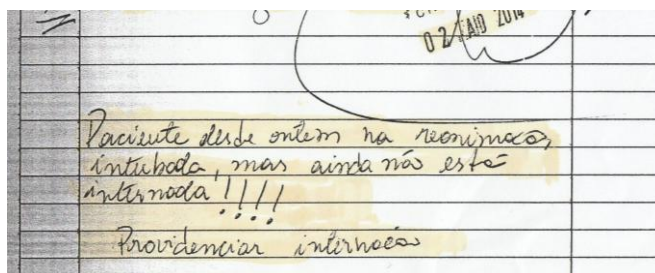 02 MAIO 2014
Paciente desde ontem na reanimação,
intubada, mas ainda não está
internada!!!!
Providenciar internação